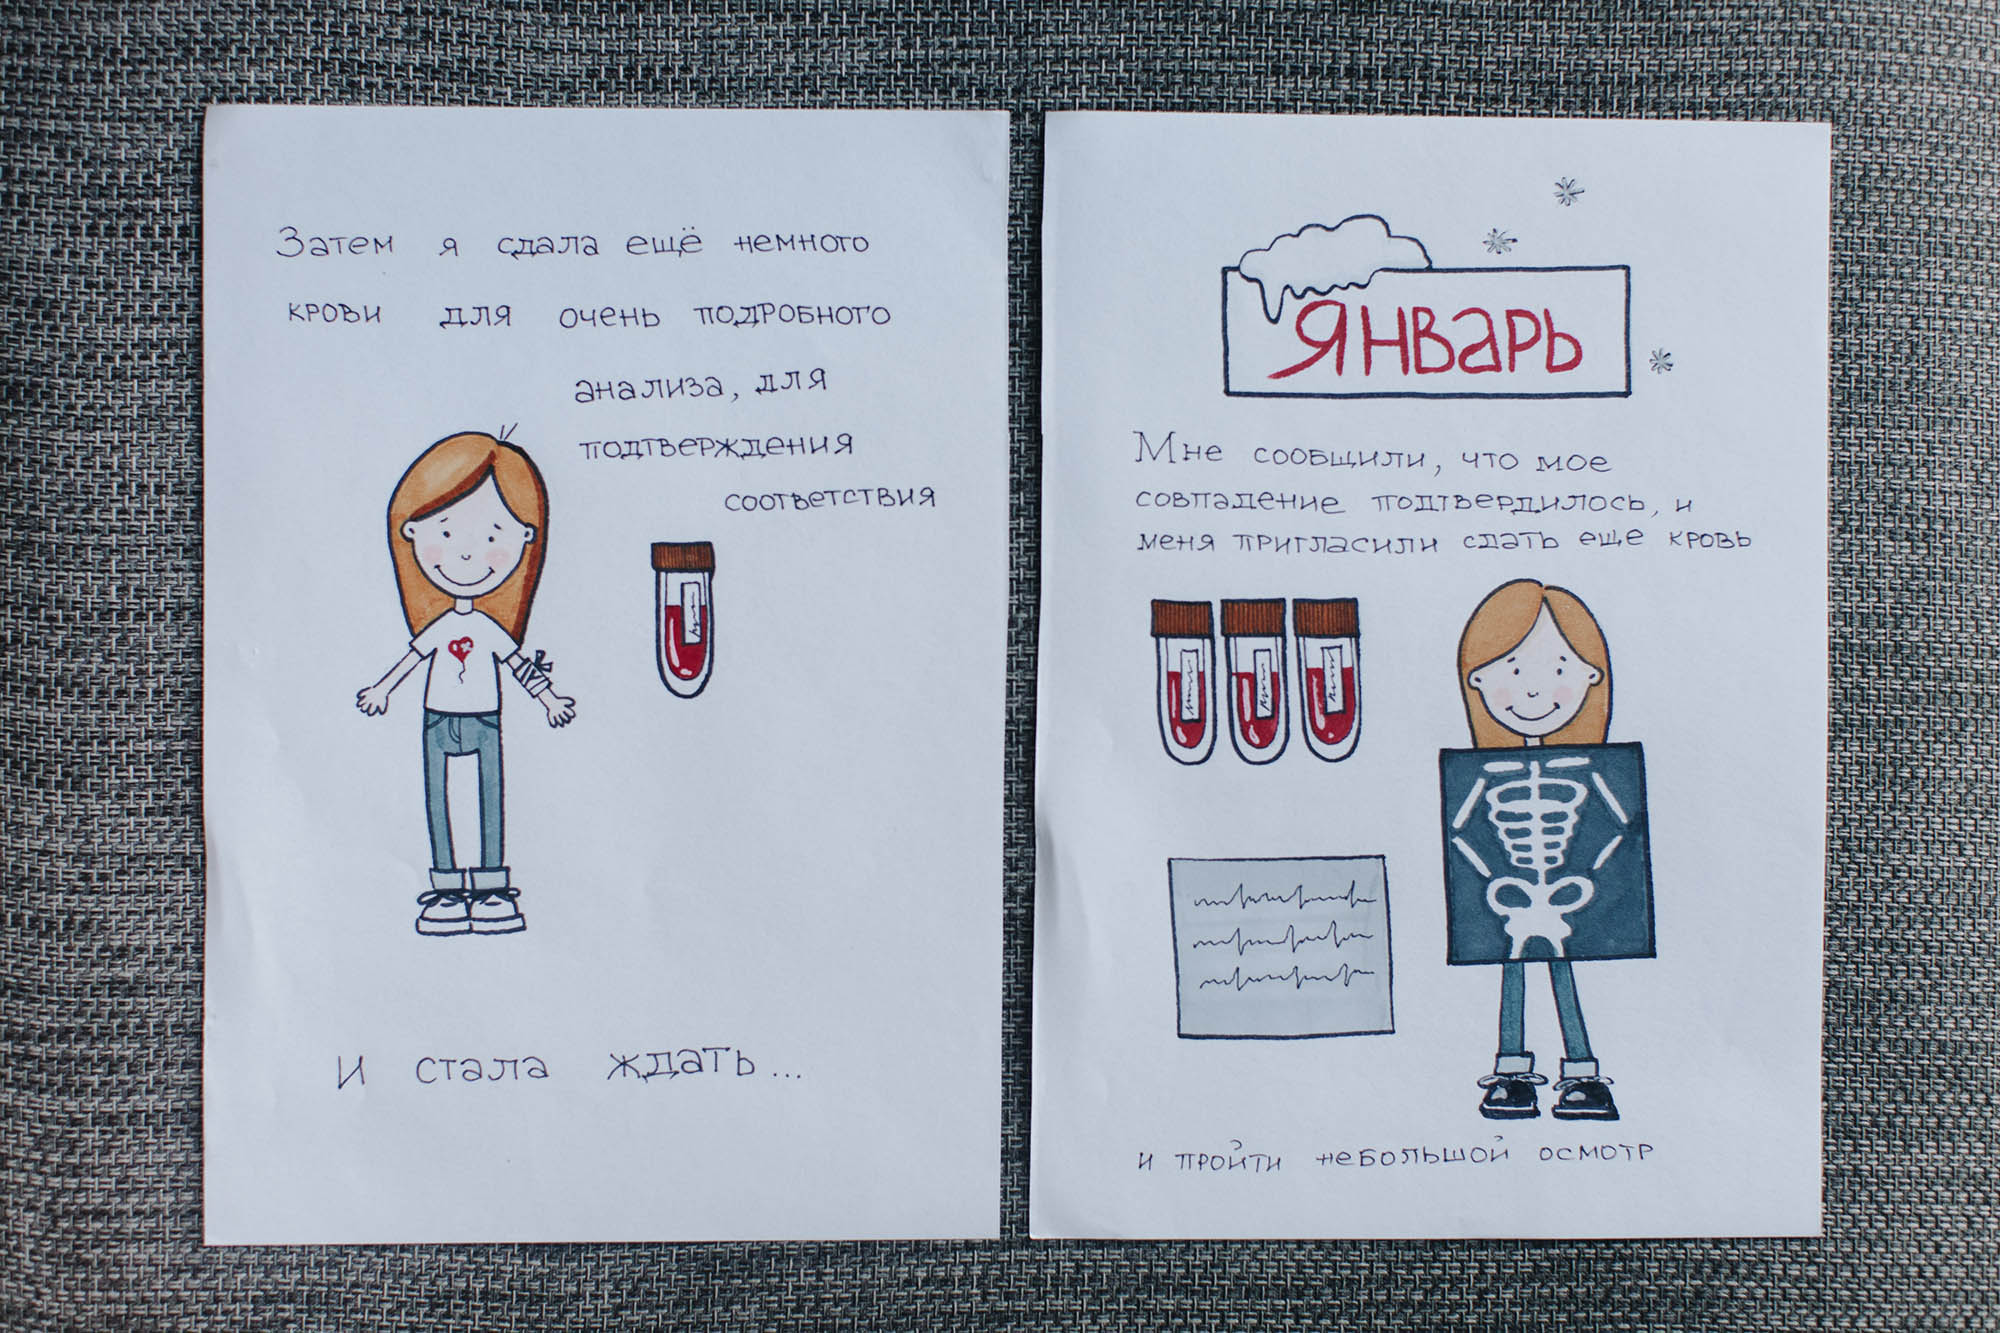 Затем я сдала ещё немного
крови для очень подробного
анализа, для
подтверждения
соответствия
И стала ждать...
Январь
Мне сообщили, что мое
совпадение подтвердилось, и
меня пригласили сдать еще кровь
и пройти небольшой осмотр